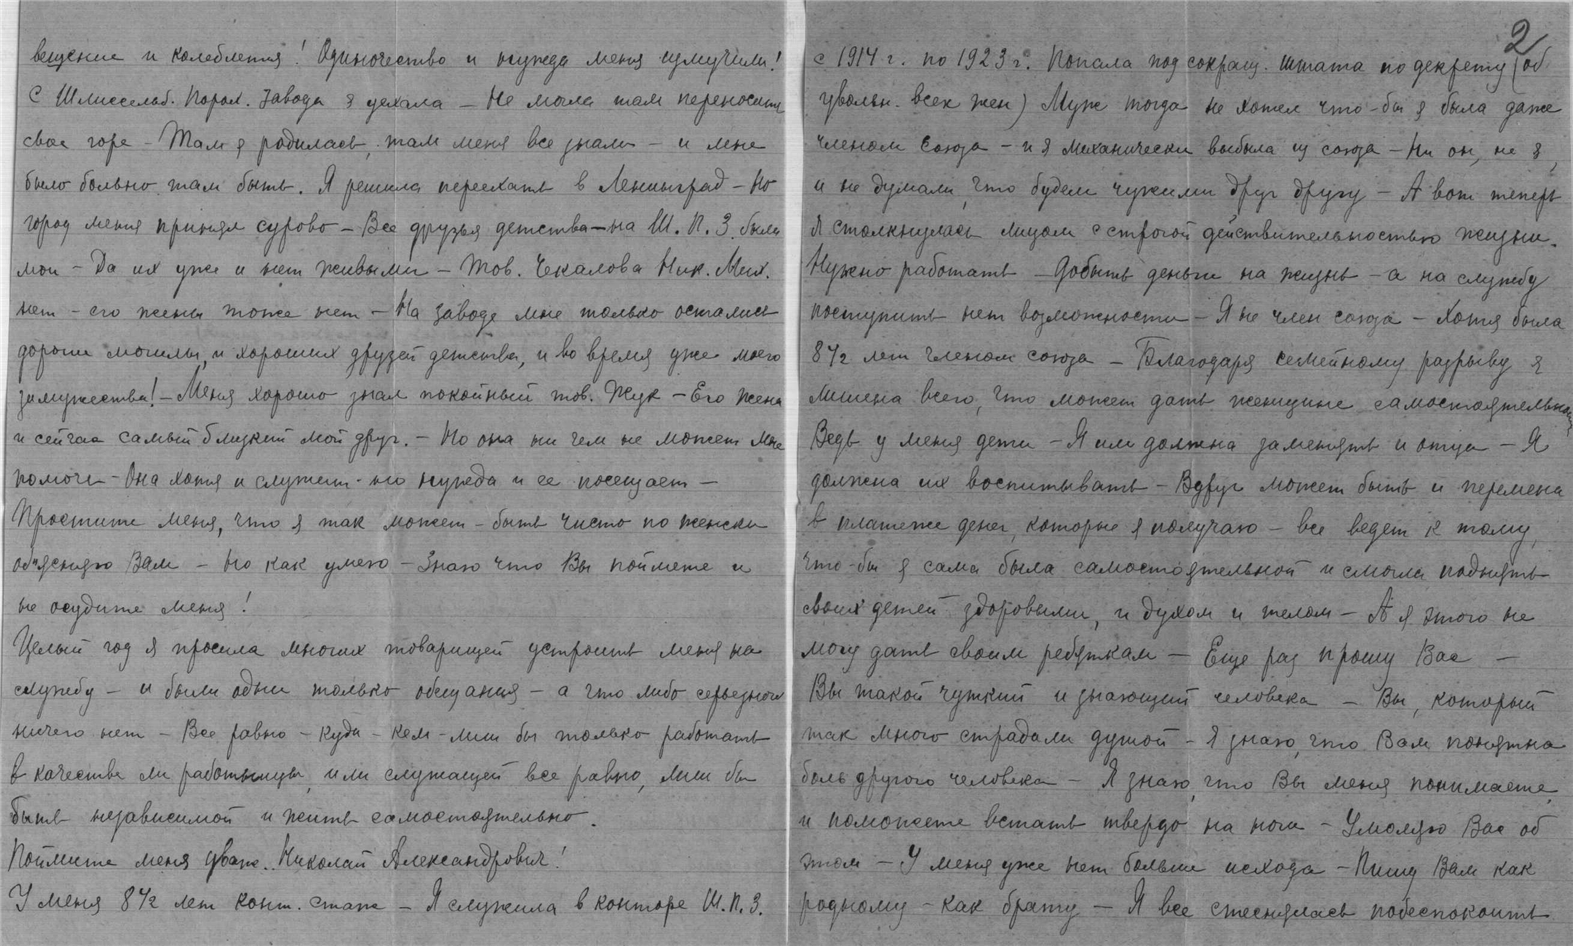 вещение и колебления! Одиночество и нужда меня измучили!
С Шлиссельб. Порох. Завода я уехала — Не могла там переносить
свое горе — Там я родилась, там меня все знали — и мне
было больно там быть. Я решила переехать в Ленинград — Но
город меня принял сурово — Все друзья детства — на Ш. П. З. были
мои — Да их уже и нет живыми — Тов. Чекалова Ник. Мих.
нет — его жены тоже нет — На заводе мне только остались
дороги могилы, и хороших друзей детства, и во время уже моего
замужества! — Меня хорошо знал покойный тов. Жук — Его жена
и сейчас самый близкий мой друг. — Но она ни чем не может мне
помочь — Она хотя и служит — но нужда и ее посещает —
Простите меня, что я так может-быть чисто по женски
об'ясняю Вам — но как умею — Знаю что Вы поймете и
не осудите меня!
Целый год я просила многих товарищей устроить меня на
службу — и были одни только обещания — а что либо серьезного
ничего нет — Все равно — куда — кем — лиш бы только работать
в качестве ли работницы, или служащей все равно, лиш бы
быть независимой и жить самостоятельно.
Поймите меня уваж. Николай Александрович!
У меня 8 1/2 лет конт. стаж — Я служила в конторе Ш. П. З.
2
с 1914 г. по 1923 г. Попала под сокращ. штата по декрету (об
увольн. всех жен) Муж тогда не хотел что-бы я была даже
членом Союза — и я механически выбыла из союза — Ни он, не я,
и не думали, что будем чужими друг другу — А вот теперь
я столкнулась лицом с строгой действительностью жизни.
Нужно работать — Добыть деньги на жизнь — а на службу
поступить нет возможности — Я не член союза — Хотя была
8 1/2 лет членом союза — Благодаря семейному разрыву я
лишена всего, что может дать женщине самостоятельность
Ведь у меня дети — Я им должна заменять и отца — Я
должна их воспитывать — Вдруг может быть и перемена
в платеже денег, которые я получаю — все ведет к тому,
что-бы я сама была самостоятельной и смогла поднять
своих детей здоровыми, и духом и телом — А я этого не
могу дать своим ребяткам — Еще раз прошу Вас —
Вы такой чуткий и знающий человека — Вы, который
так много страдали душой — Я знаю, что Вам понятна
боль другого человека — Я знаю, что Вы меня понимаете,
и поможете встать твердо на ноги — Умоляю Вас об
этом — У меня уже нет больше исхода — Пишу Вам как
родному — как брату — Я все стеснялась побеспокоить